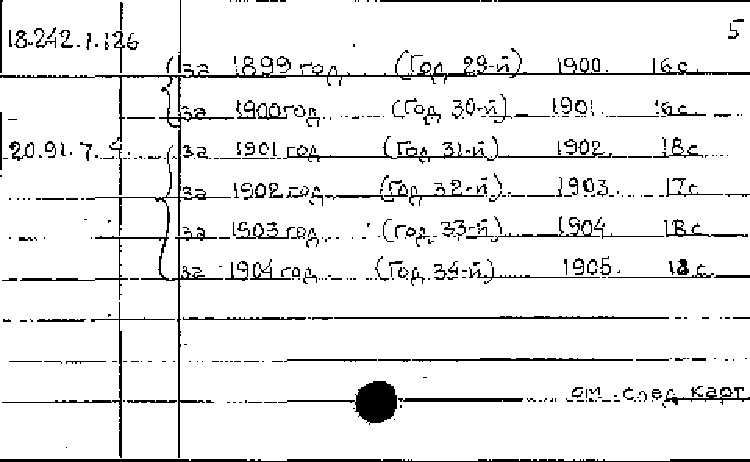 5
18.242.7.126
за 1899 год. (Год 29-й) 1900. 16с.
за 1900 год (Год 30-й) 1901. 16с.
20.91.7.4. за 1901 год (Год 31-й) 1902. 18с.
за 1902 год (Год 32-й) 1903. 17с
за 1903 год. (Год 33-й) 1904. 18с.
за 1904 год (Год 34-й) 1905. 18с.
см. след карт